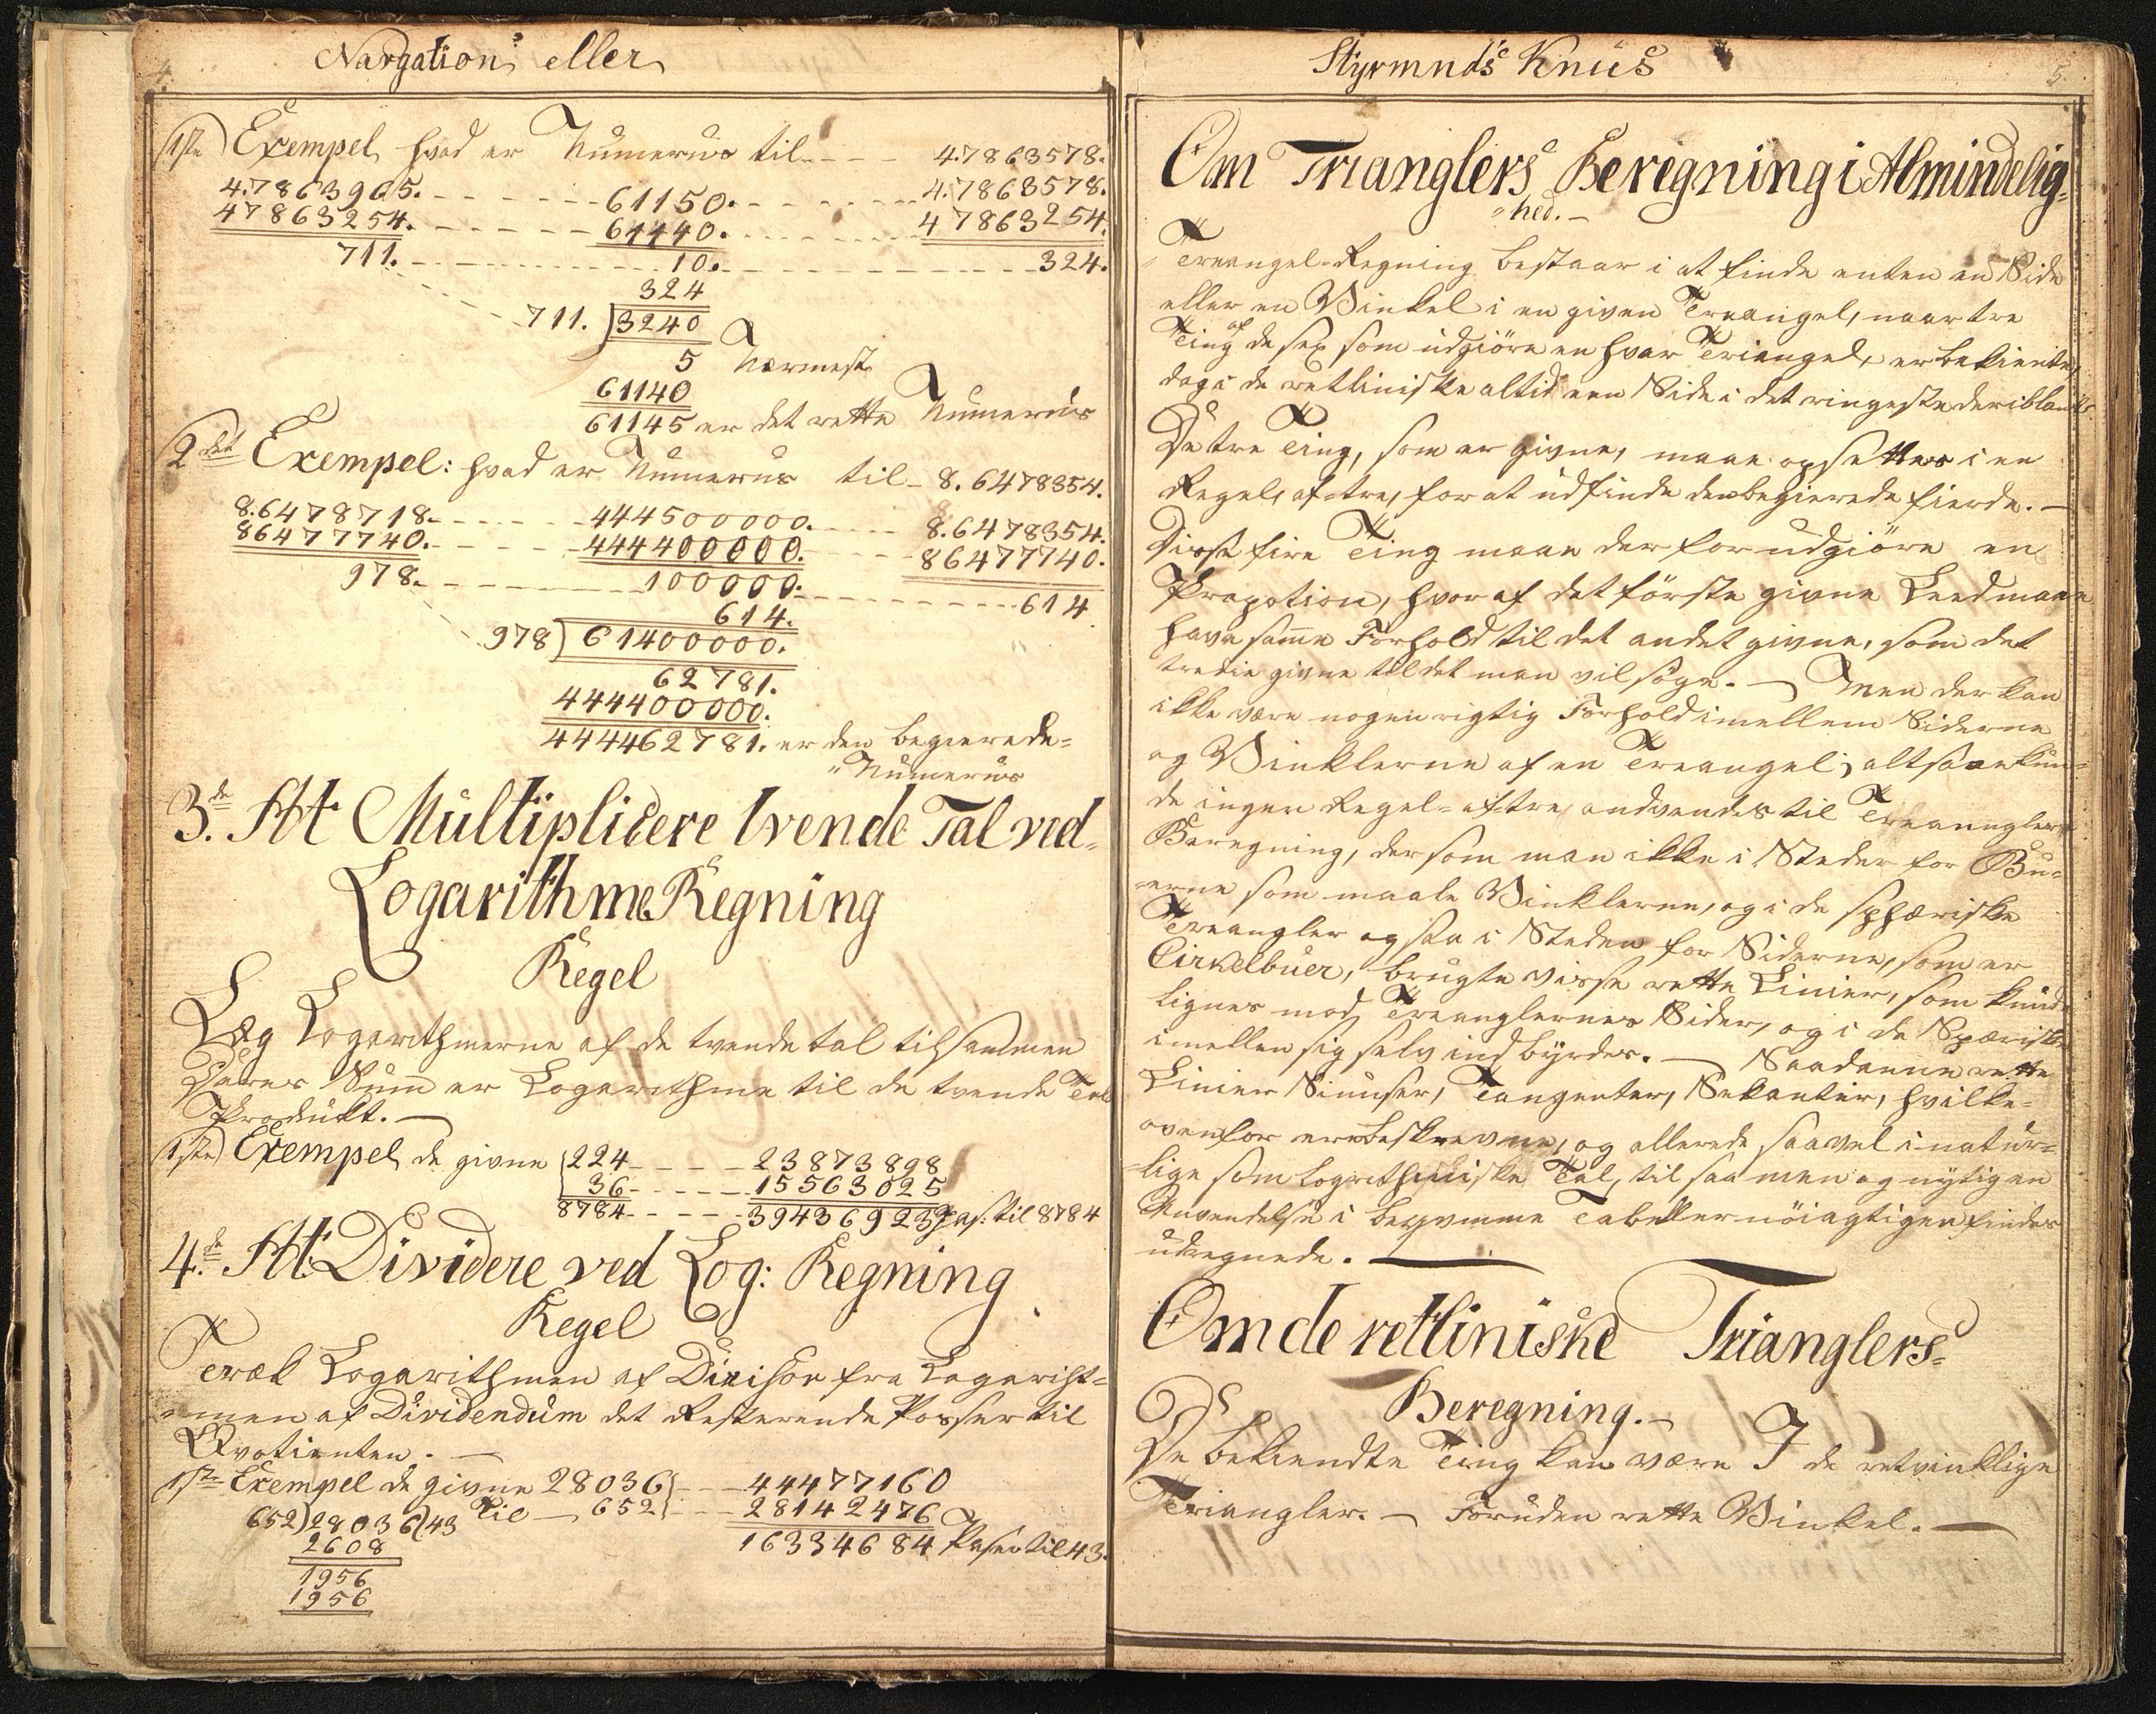 4.
Navgation eller
1ste Exempel hvad er Numerus til - - - 4.7863578.
4.7863965. - - - - - - 61150. - - - - - - 4.7863578.
47863254. - - - - - - 61140. - - - - - - 47863254.
711. - - - - - - 10. - - - - - - 324.
324
711. 3240
5 Nærmest
61140
61145 er det rette Numerus
2det Exempel: hvad er Numerus til - 8.6478354.
8.6478718. - - - - - 444500000. - - - - 8.6478354.
86477740. - - - - - 444400000. - - - - 86477740.
978. - - - - - - 100000. - - - - - - 614
614.
978) 61400000.
62781.
444400000.
444462781. er den begierede=
"Numerus
3de At Multiplicere tvende Tal ved=
Logarithme Regning
Regel
Læg Logarithmerne af de tvende tal tilsammen
Deres Sum er Logarithme til de tvende Tal
Produkt. —
1ste Exempel de givne 224 - - - - - 23873898
36 - - - - - 15563025
8784 - - - - - 39436923 Pas: til 8784
4de At Dividere ved Log: Regning
Regel
Træk Logarithmen af Divisor fra Logarith=
men af Dividendum det Resterende Passer til
Qvotienten. —
1ste Exempel de givne 28036 - - - 44477160
652) 28036 (43 Til — 652 - - - 28142476
2608 16334684 Passer til 43.
1956
1956
Styrmnds Knüs
5.
Om Trianglers Beregning i Almindelig=
"hed. —
Treangel=Regning bestaar i at finde enten en Side
eller en Vinkel i en given Treangel, naar tre
Ting af de sex som udgiöre en hver Triangel, er bekiente,
dog i de retliniske altid een Side i det ringeste deriblandt
De tre Ting, som er givne, maae opsettes i en
Regel, af=tre, for at udfinde den begierede fierde. —
Disse fire Ting maae derfor udgiöre en
Propotion, hvoraf det förste givne Leed maae
have samme Forhold til det andet givne, som det
tredie givne til det man vil söge. — Men der kan
ikke være nogen rigtig Forhold imellem Siderne
og Vinklerne af en Treangel; altsaa kun=
de ingen Regel=af=tre, andvendes til Treanglers
Beregning, dersom man ikke i Steder for Bu=
erne som maale Vinklerne, og i de sphæriske
Treangler ogsaa i Steden for Siderne, som er
Cirkelbuer, brugte visse rette Linier, som kunde
lignes mod Treanglernes Sider, og i de Spæriske
imellem sig selv indbyrdes. — Saadanne rette
Linier Sinuser, Tangenter, Sekanter, hvilke=
ovenfor ere beskrevne, og allerede saavel i natur=
lige som Logrithmiske Tal, til saamen og nytigen
Anvendelse i beqvemme Tabeller nöiagtigen findes
udregnede. —
Om de retliniske Trianglers=
Beregning. —
De bekiendte Ting kan være I de retvinklige
Triangler. — Foruden rette Vinkel. —